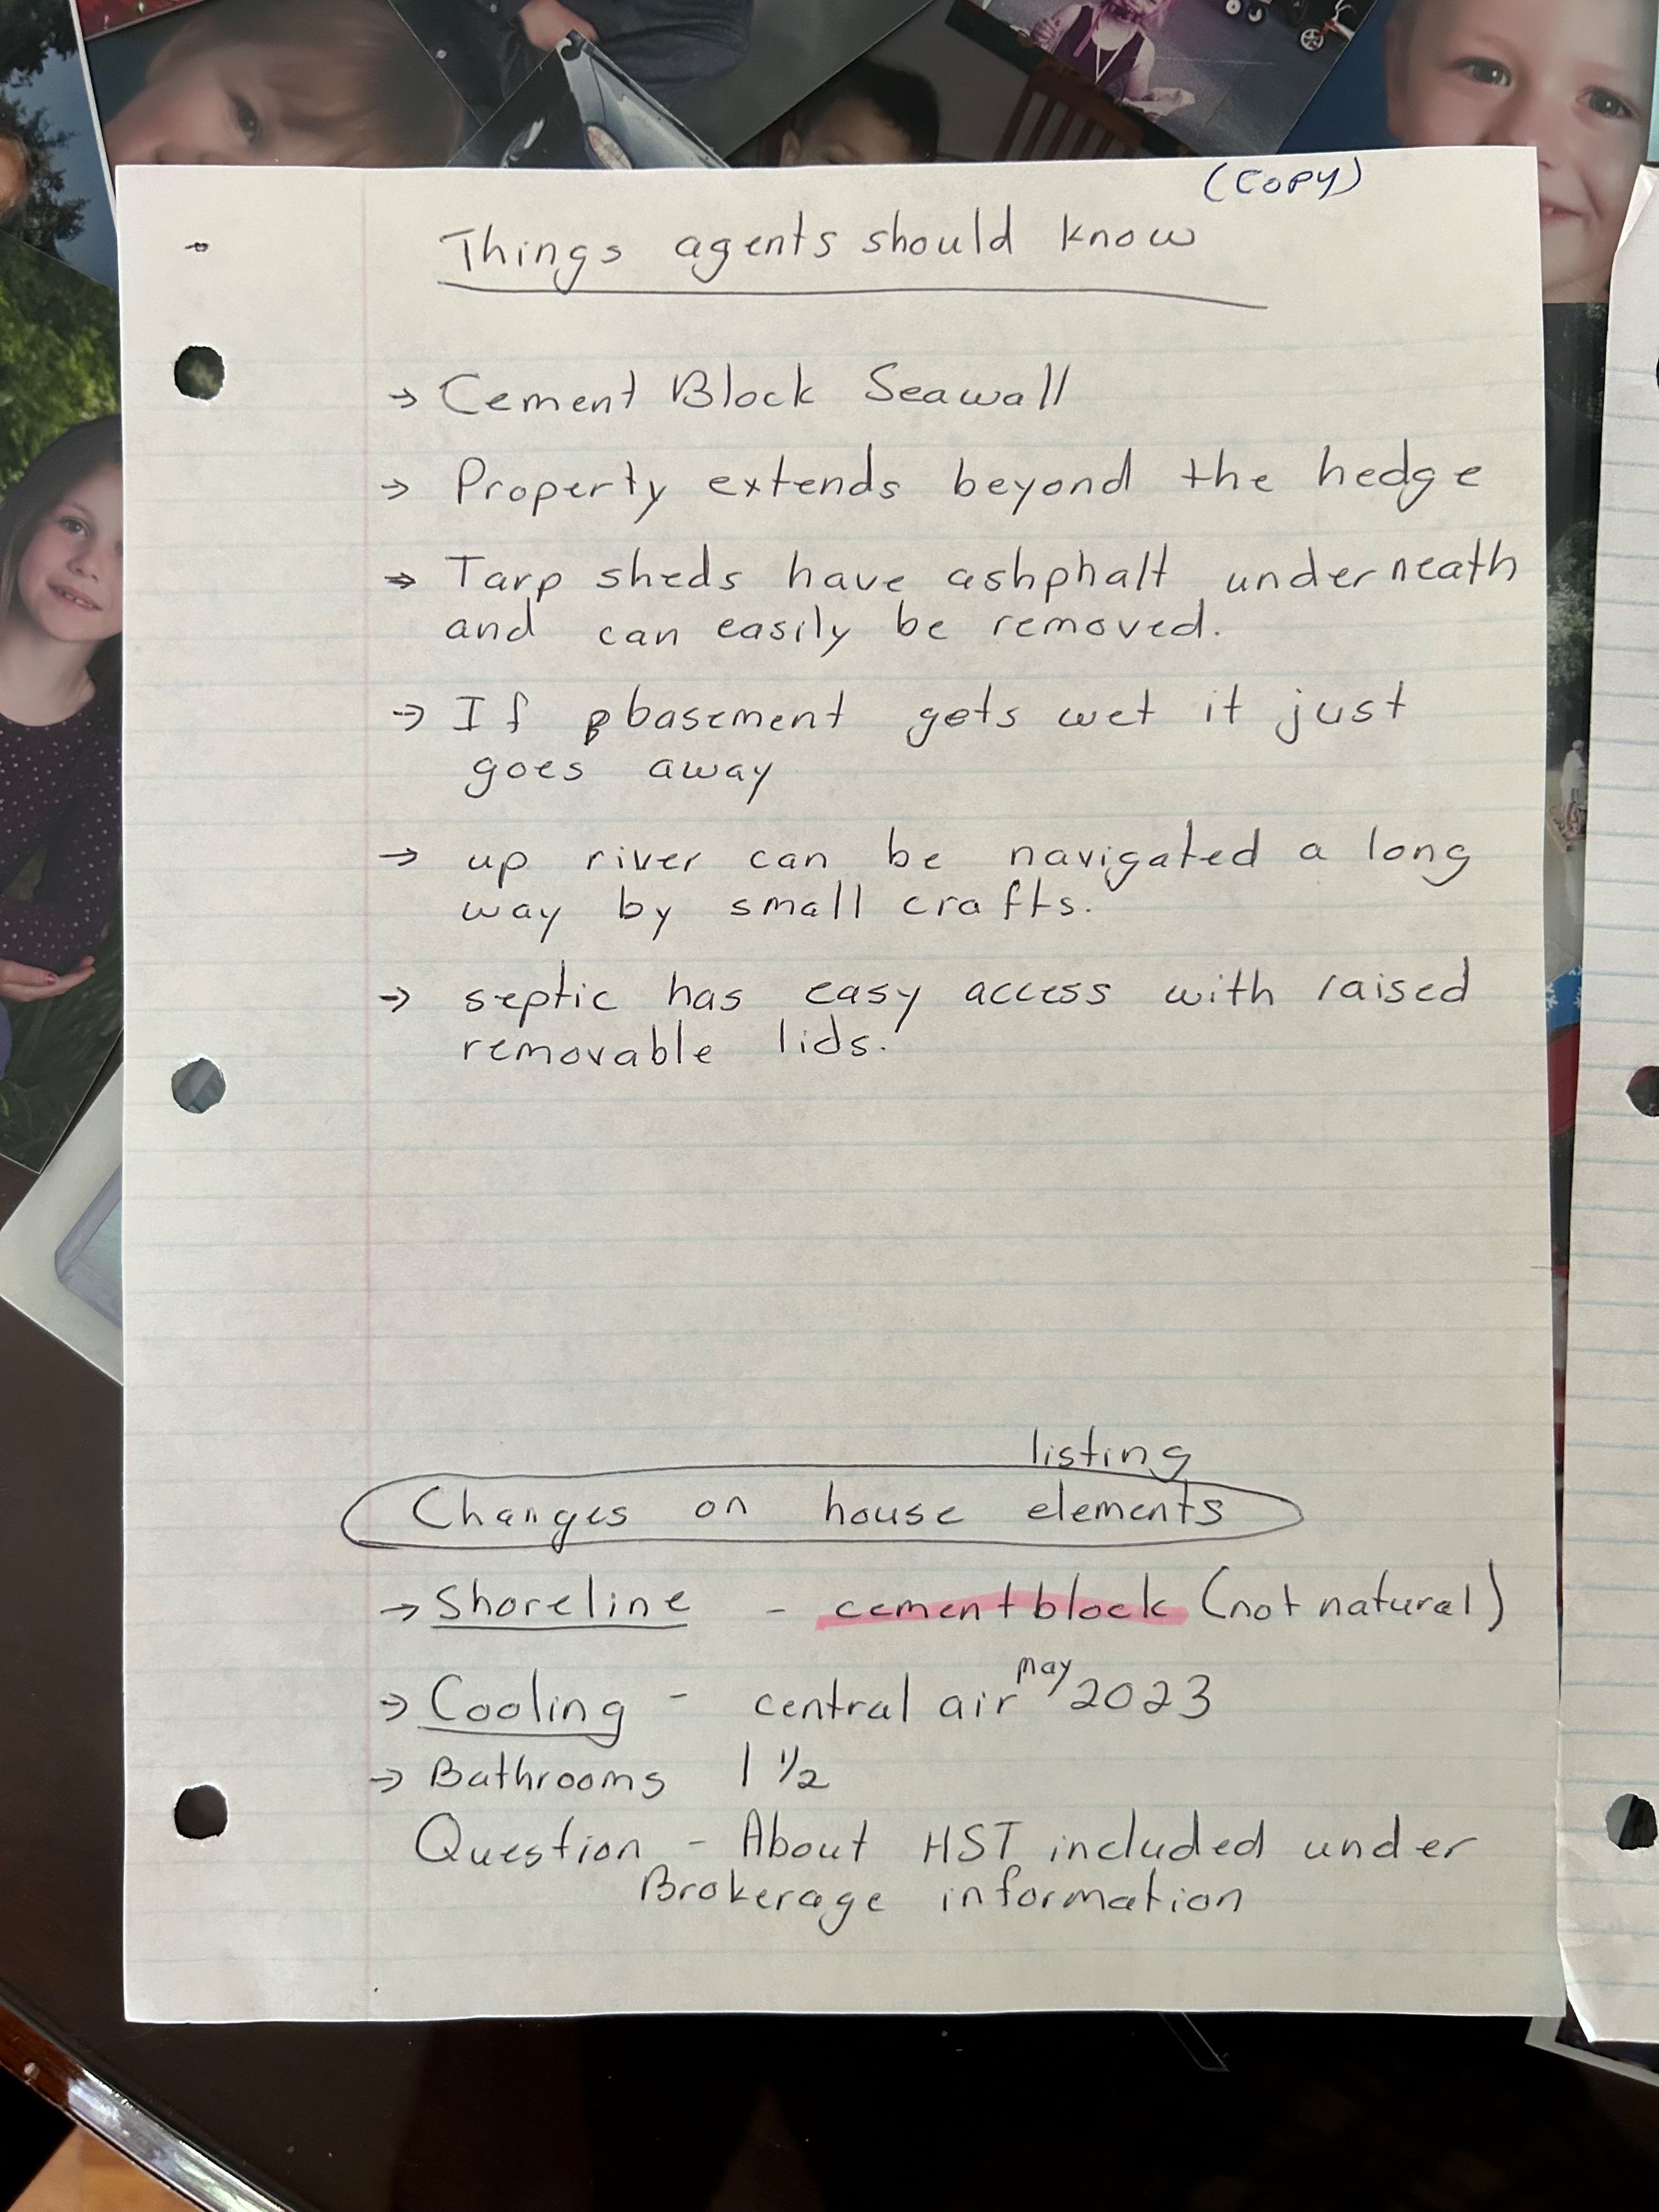 (COPY)
Things agents should know
→ Cement Block Seawall
→ Property extends beyond the hedge
→ Tarp sheds have ashphalt underneath
and can easily be removed.
→ If basement gets wet it just
goes away
→ up river can be navigated a long
way by small crafts.
→ septic has easy access with raised
removable lids.
listing
Changes on house elements
→ Shoreline - cement block (not natural)
→ Cooling - central air may 2023
→ Bathrooms 1 1/2
Question - About HST included under
Brokerage information